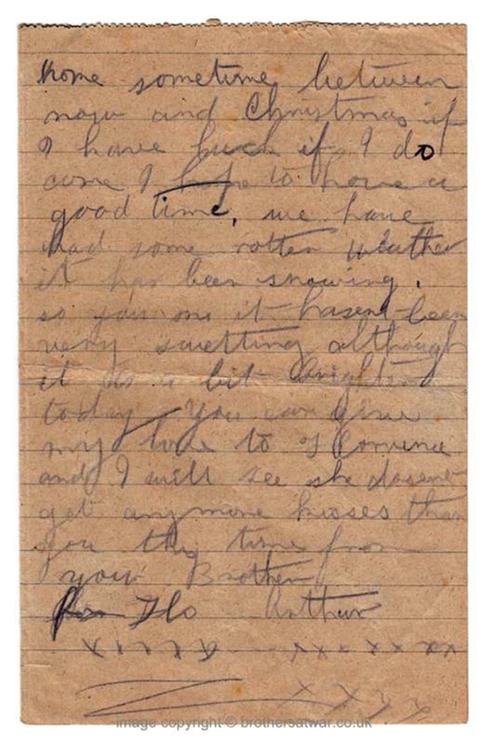 home sometime between
now and Christmas if
I have luck if I do
come I hope to have a
good time, we have
had some rotten weather
it has been snowing.
so far it hasent been
very although
it is a bit
today You can give
my love to
and I will see she dosent
get anymore kisses than
you this time from
your Brother
Flo Arthur
image copyright © brothersatwar.co.uk